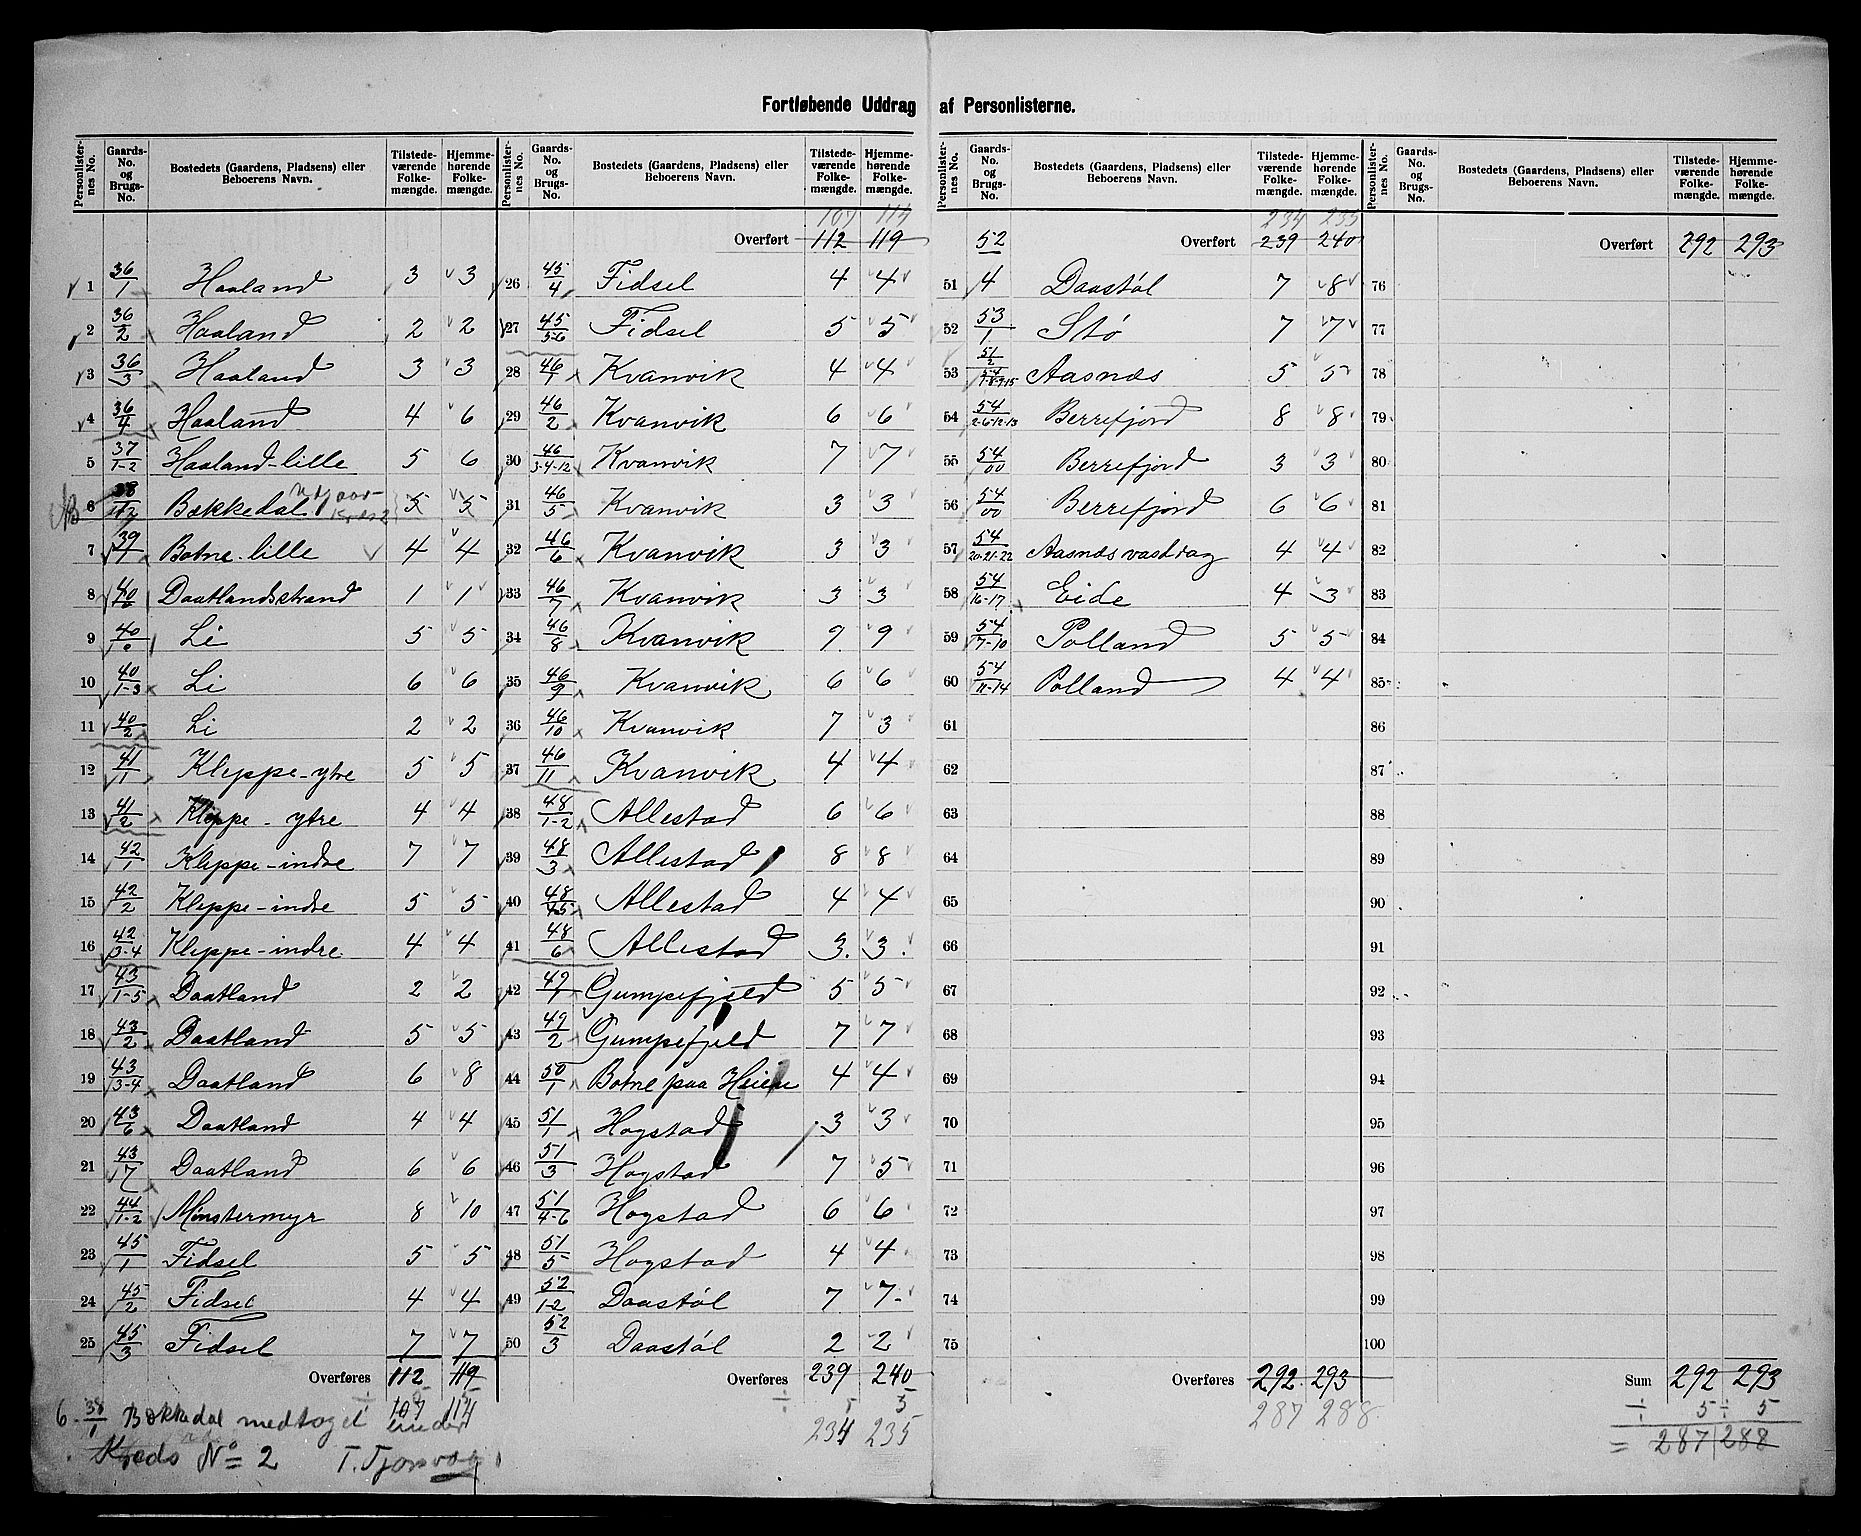 Fortløbende Uddrag af Personlisterne.
Personlisternes No. Gaards-No. og Brugs-No. Bostedets (Gaardens, Pladsens) eller Beboerens Navn. Tilstedeværende Folkemængde. Hjemmehørende Folkemængde.
1 36/1 Haaland 3 3
2 36/2 Haaland 2 2
3 36/3 Haaland 3 3
4 36/4 Haaland 4 6
5 37/1-2 Haaland-lille 5 6
6 38/1-2 Bækkedal udgaar Kreds 2 5 5
7 39/1 Botne-lille 4 4
8 40 Daatlandsstrand 1 1
9 40 Li 5 5
10 40/1-3 Li 6 6
11 40/2 Li 2 2
12 41/1 Kleppe-ytre 5 5
13 41/2 Kleppe-ytre 4 4
14 42/1 Kleppe-indre 7 7
15 42/2 Kleppe-indre 5 5
16 42/3-4 Kleppe-indre 4 4
17 43/1-5 Daatland 2 2
18 43/2 Daatland 5 5
19 43/3-4 Daatland 6 8
20 43/6 Daatland 4 4
21 43/7 Daatland 6 6
22 44/1-2 Mønstermyr 8 10
23 45/1 Fidsel 5 5
24 45/2 Fidsel 4 4
25 45/3 Fidsel 7 7
Overføres 112 119
÷ 5 5
107 114
6 - 38/1 Bækkedal medtaget under
Kreds No 2 T. Tjorsvaag
Personlisternes No. Gaards-No. og Brugs-No. Bostedets (Gaardens, Pladsens) eller Beboerens Navn. Tilstedeværende Folkemængde. Hjemmehørende Folkemængde.
107 114
Overført 112 119
26 45/4 Fidsel 4 4
27 45/5-6 Fidsel 5 5
28 46/1 Kvanvik 4 4
29 46/2 Kvanvik 6 6
30 46/3-4-12 Kvanvik 7 7
31 46/5 Kvanvik 3 3
32 46/6 Kvanvik 3 3
33 46/7 Kvanvik 3 3
34 46/8 Kvanvik 9 9
35 46/9 Kvanvik 6 6
36 46/10 Kvanvik 7 3
37 46/11 Kvanvik 4 4
38 48/1-2 Allestad 6 6
39 48/3 Allestad 8 8
40 48/4-5 Allestad 4 4
41 48/6 Allestad 3 3
42 49/1 Gumpefjeld 5 5
43 49/2 Gumpefjeld 7 7
44 50/1 Botne paa Heien 4 4
45 51/1 Hogstad 3 3
46 51/3 Hogstad 7 5
47 51/4-6 Hogstad 6 6
48 51/5 Hogstad 4 4
49 52/1-2 Daastøl 7 7
50 52/3 Daastøl 2 2
Overføres 239 240
÷ 5 5
234 235
Personlisternes No. Gaards-No. og Brugs-No. Bostedets (Gaardens, Pladsens) eller Beboerens Navn. Tilstedeværende Folkemængde. Hjemmehørende Folkemængde.
234 235
52 Overført 239 240
51 4 Daastøl 7 8
52 53/1 Stø 7 7
53 51/2 54/7-8-9-15 Aasnæs 5 5
54 54/2-6-12-13 Berrefjord 8 8
55 54/00 Berrefjord 3 3
56 54/00 Berrefjord 6 6
57 54/20-21-22 Aasnæsvaddrag 4 4
58 54/16-17 Eide 4 3
59 54/7-10 Polland 5 5
60 54/11-14 Polland 4 4
61
62
63
64
65
66
67
68
69
70
71
72
73
74
75
Overføres 292 293
287 288
Personlisternes No. Gaards-No. og Brugs-No. Bostedets (Gaardens, Pladsens) eller Beboerens Navn. Tilstedeværende Folkemængde. Hjemmehørende Folkemængde.
Overført 292 293
76
77
78
79
80
81
82
83
84
85
86
87
88
89
90
91
92
93
94
95
96
97
98
99
100
Sum 292 293
÷ 5 ÷ 5
= 287 288